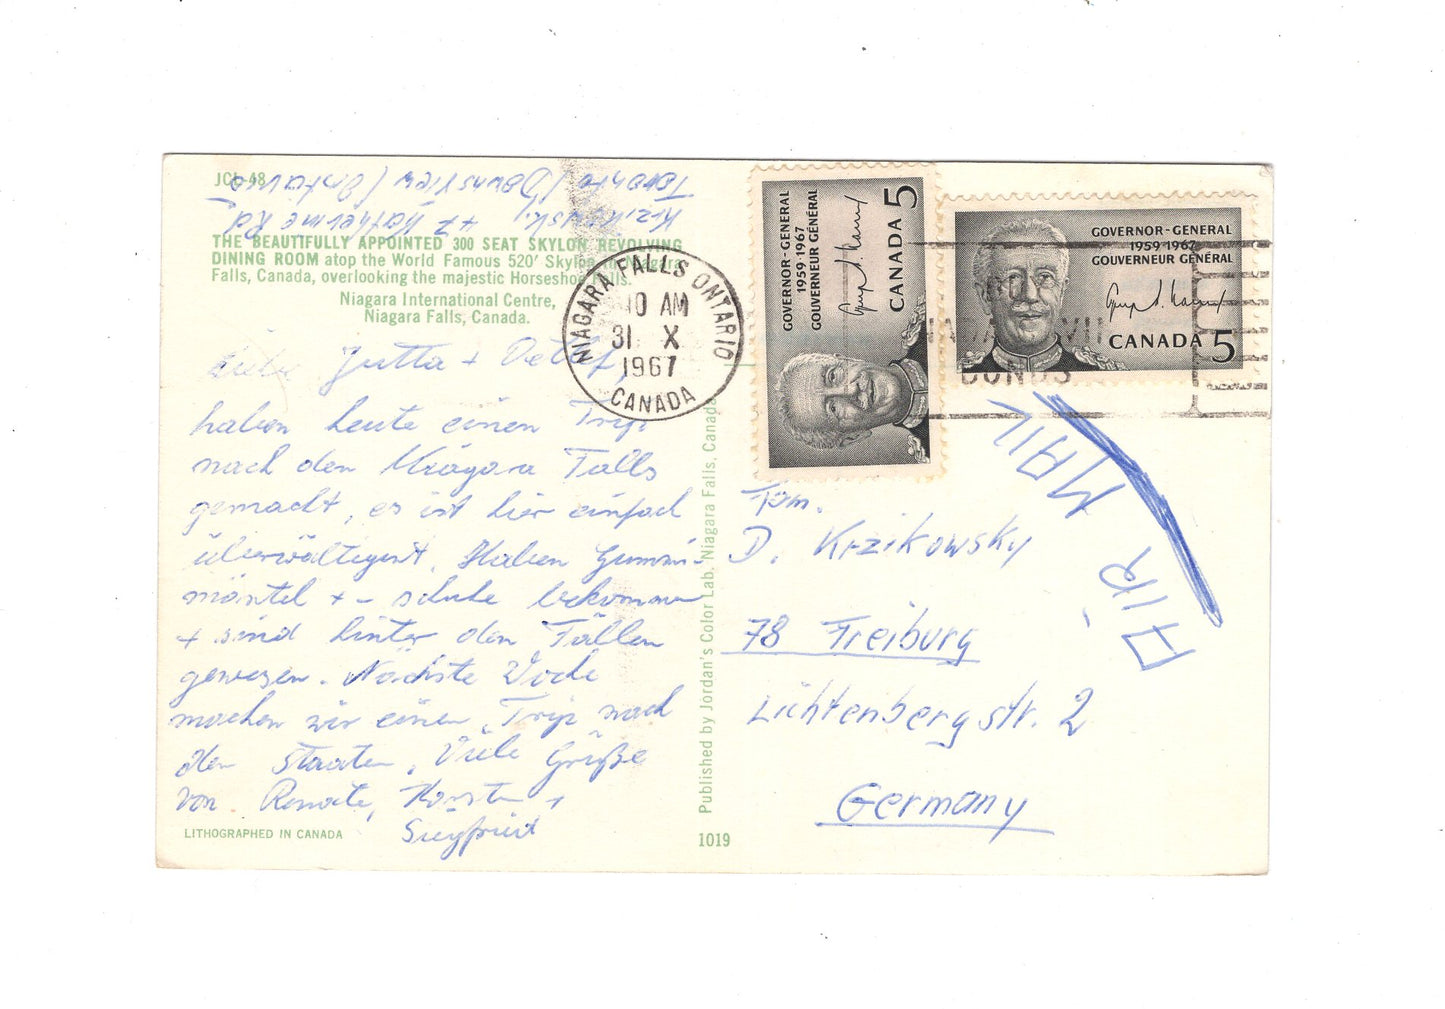 JCL-48
Krzikowski, 47 Katherine Rd
Toronto / Downsview (Ontario
THE BEAUTIFULLY APPOINTED 300 SEAT SKYLON REVOLVING
DINING ROOM atop the World Famous 520' Skylon in Niagara
Falls, Canada, overlooking the majestic Horseshoe Falls.
Niagara International Centre,
Niagara Falls, Canada.
Liebe Jutta + Detlef,
haben heute einen Trip
nach den Niagara Falls
gemacht, es ist hier einfach
überwältigent. Haben Gummi-
mäntel + - schuhe bekommen
+ sind hinter den Fällen
gewesen. Nächste Woche
machen wir einen Trip nach
den Staaten. Viele Grüße
von Renate, Karsten +
Siegfried
LITHOGRAPHED IN CANADA
Published by Jordan's Color Lab. Niagara Falls, Canada
1019
NIAGARA FALLS ONTARIO
10 AM
31 X
1967
CANADA
GOVERNOR-GENERAL
1959-1967
GOUVERNEUR GÉNÉRAL
CANADA 5
GOVERNOR-GENERAL
1959-1967
GOUVERNEUR GÉNÉRAL
CANADA 5
BONDS
AIR MAIL
Fam.
D. Krzikowsky
78 Freiburg
Lichtenbergstr. 2
Germany